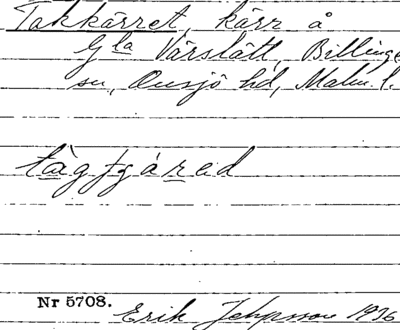 Takkärret, kärr å
Gla Värslätt, Billinge
sn, Onsjö hd, Malm. l.
Nr 5708.
Erik Jeppsson 1936